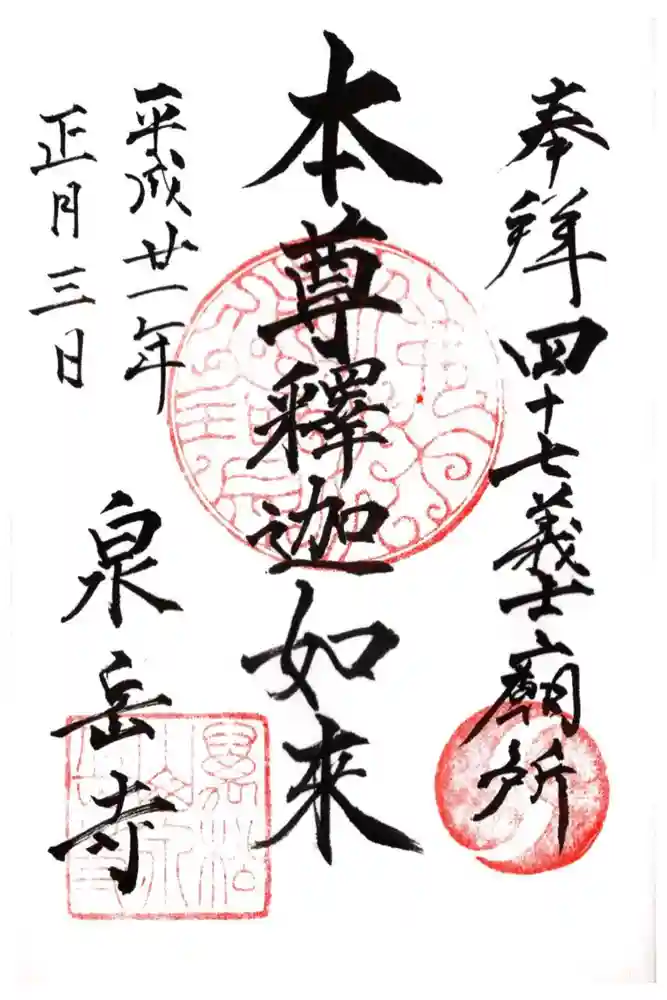 奉拜 四十七義士廟所
本尊釋迦如来
平成廿一年
正月三日
泉岳寺